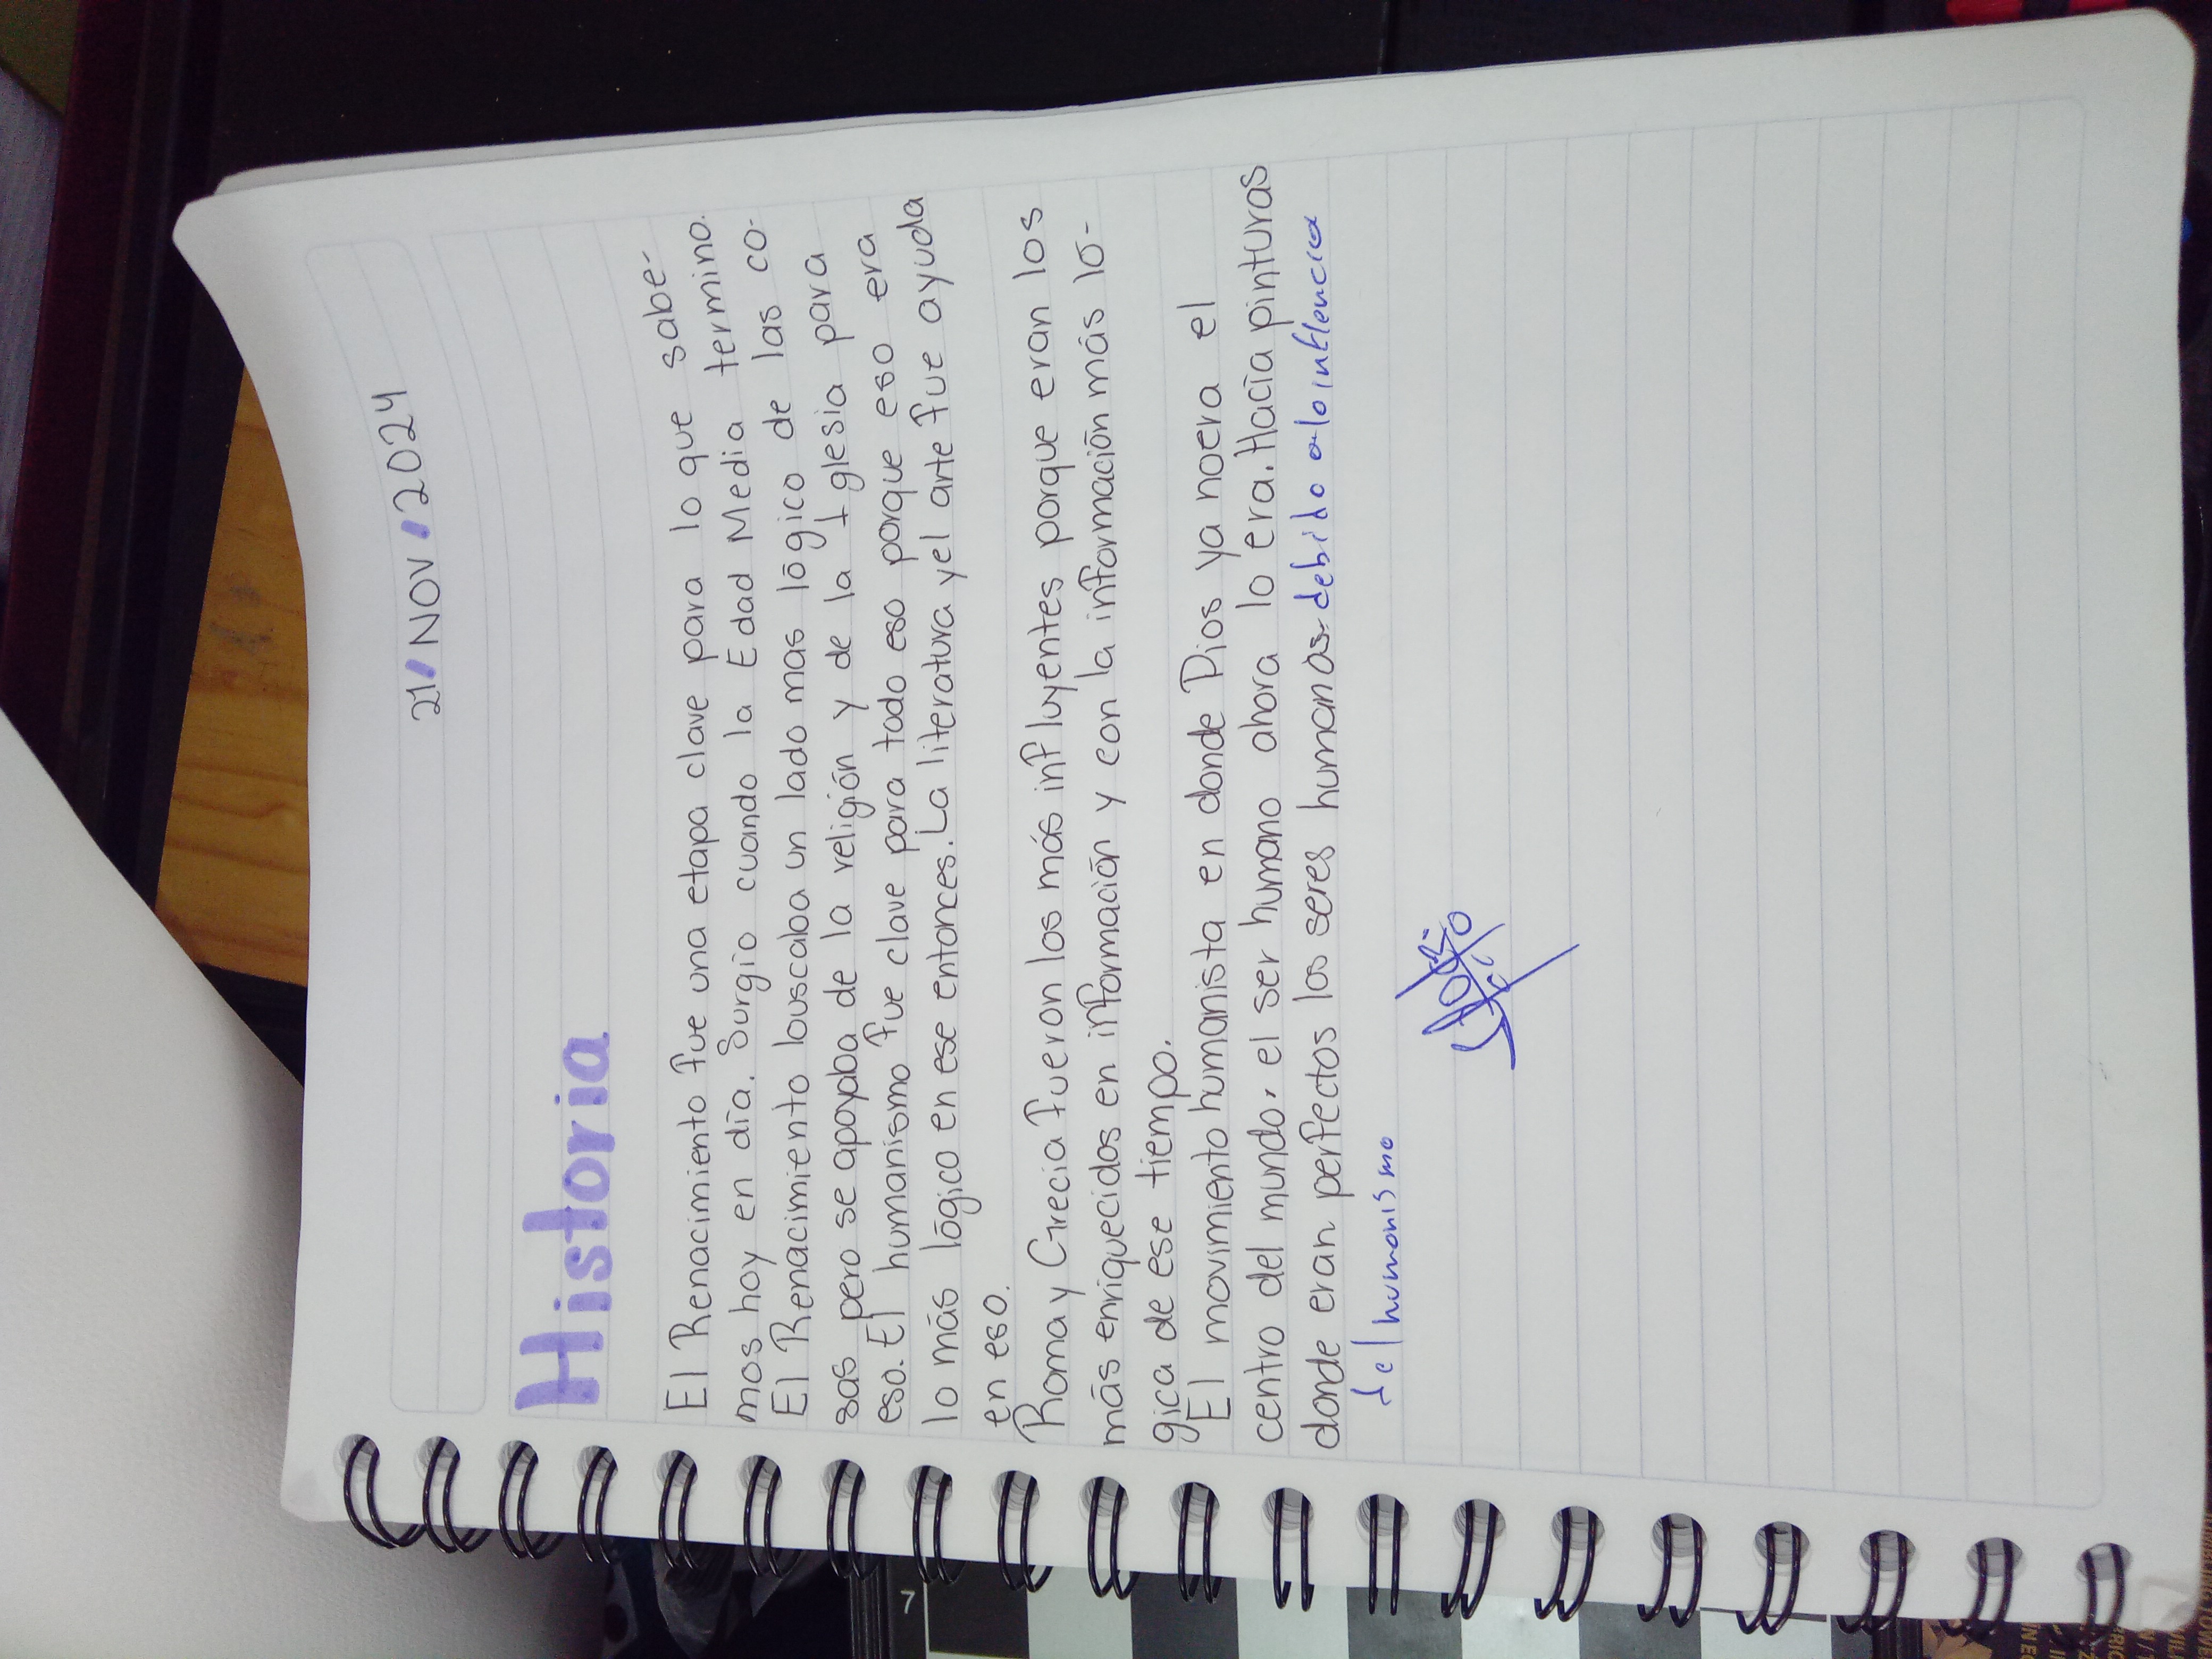 21/NOV/2024
Historia
El Renacimiento fue una etapa clave para lo que sabe-
mos hoy en día. Surgio cuando la Edad Media termino.
El Renacimiento buscaba un lado mas lógico de las co-
sas pero se apoyaba de la religión y de la Iglesia para
eso. El humanismo fue clave para todo eso porque eso era
lo más lógico en ese entonces. La literatura y el arte fue ayuda
en eso.
Roma y Grecia fueron los más influyentes porque eran los
más enriquecidos en información y con la información más ló-
gica de ese tiempo.
El movimiento humanista en donde Dios ya no era el
centro del mundo, el ser humano ahora lo era. Hacía pinturas
donde eran perfectos los seres humanos. debido a la inflencia
del humanismo
7